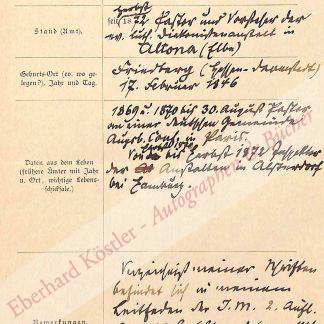 Herbst
Stand (Amt).
seit 1872 Pastor und Vorsteher der
ev. luth. Diakonissenanstalt in
Altona (Elbe)
Geburts-Ort (ev. wo ge-
legen?), Jahr und Tag.
Friedberg (Hessen-Darmstadt)
17. Februar 1846
1869 u. 1870 bis 30. August Pastor
an einer deutschen Gemeinde
Augsb. Conf. in Paris.
bis Herbst 1872 Inspektor
der Anstalten in Alsterdorf
bei Hamburg.
Daten aus dem Leben
(frühere Ämter mit Jahr
u. Ort, wichtige Lebens-
schicksale).
Verzeichniß meiner Schriften
befindet sich in meinem
Leitfaden der I. M. 2. Aufl.
Bemerkungen.
Eberhard Köstler - Autographen & Bücher